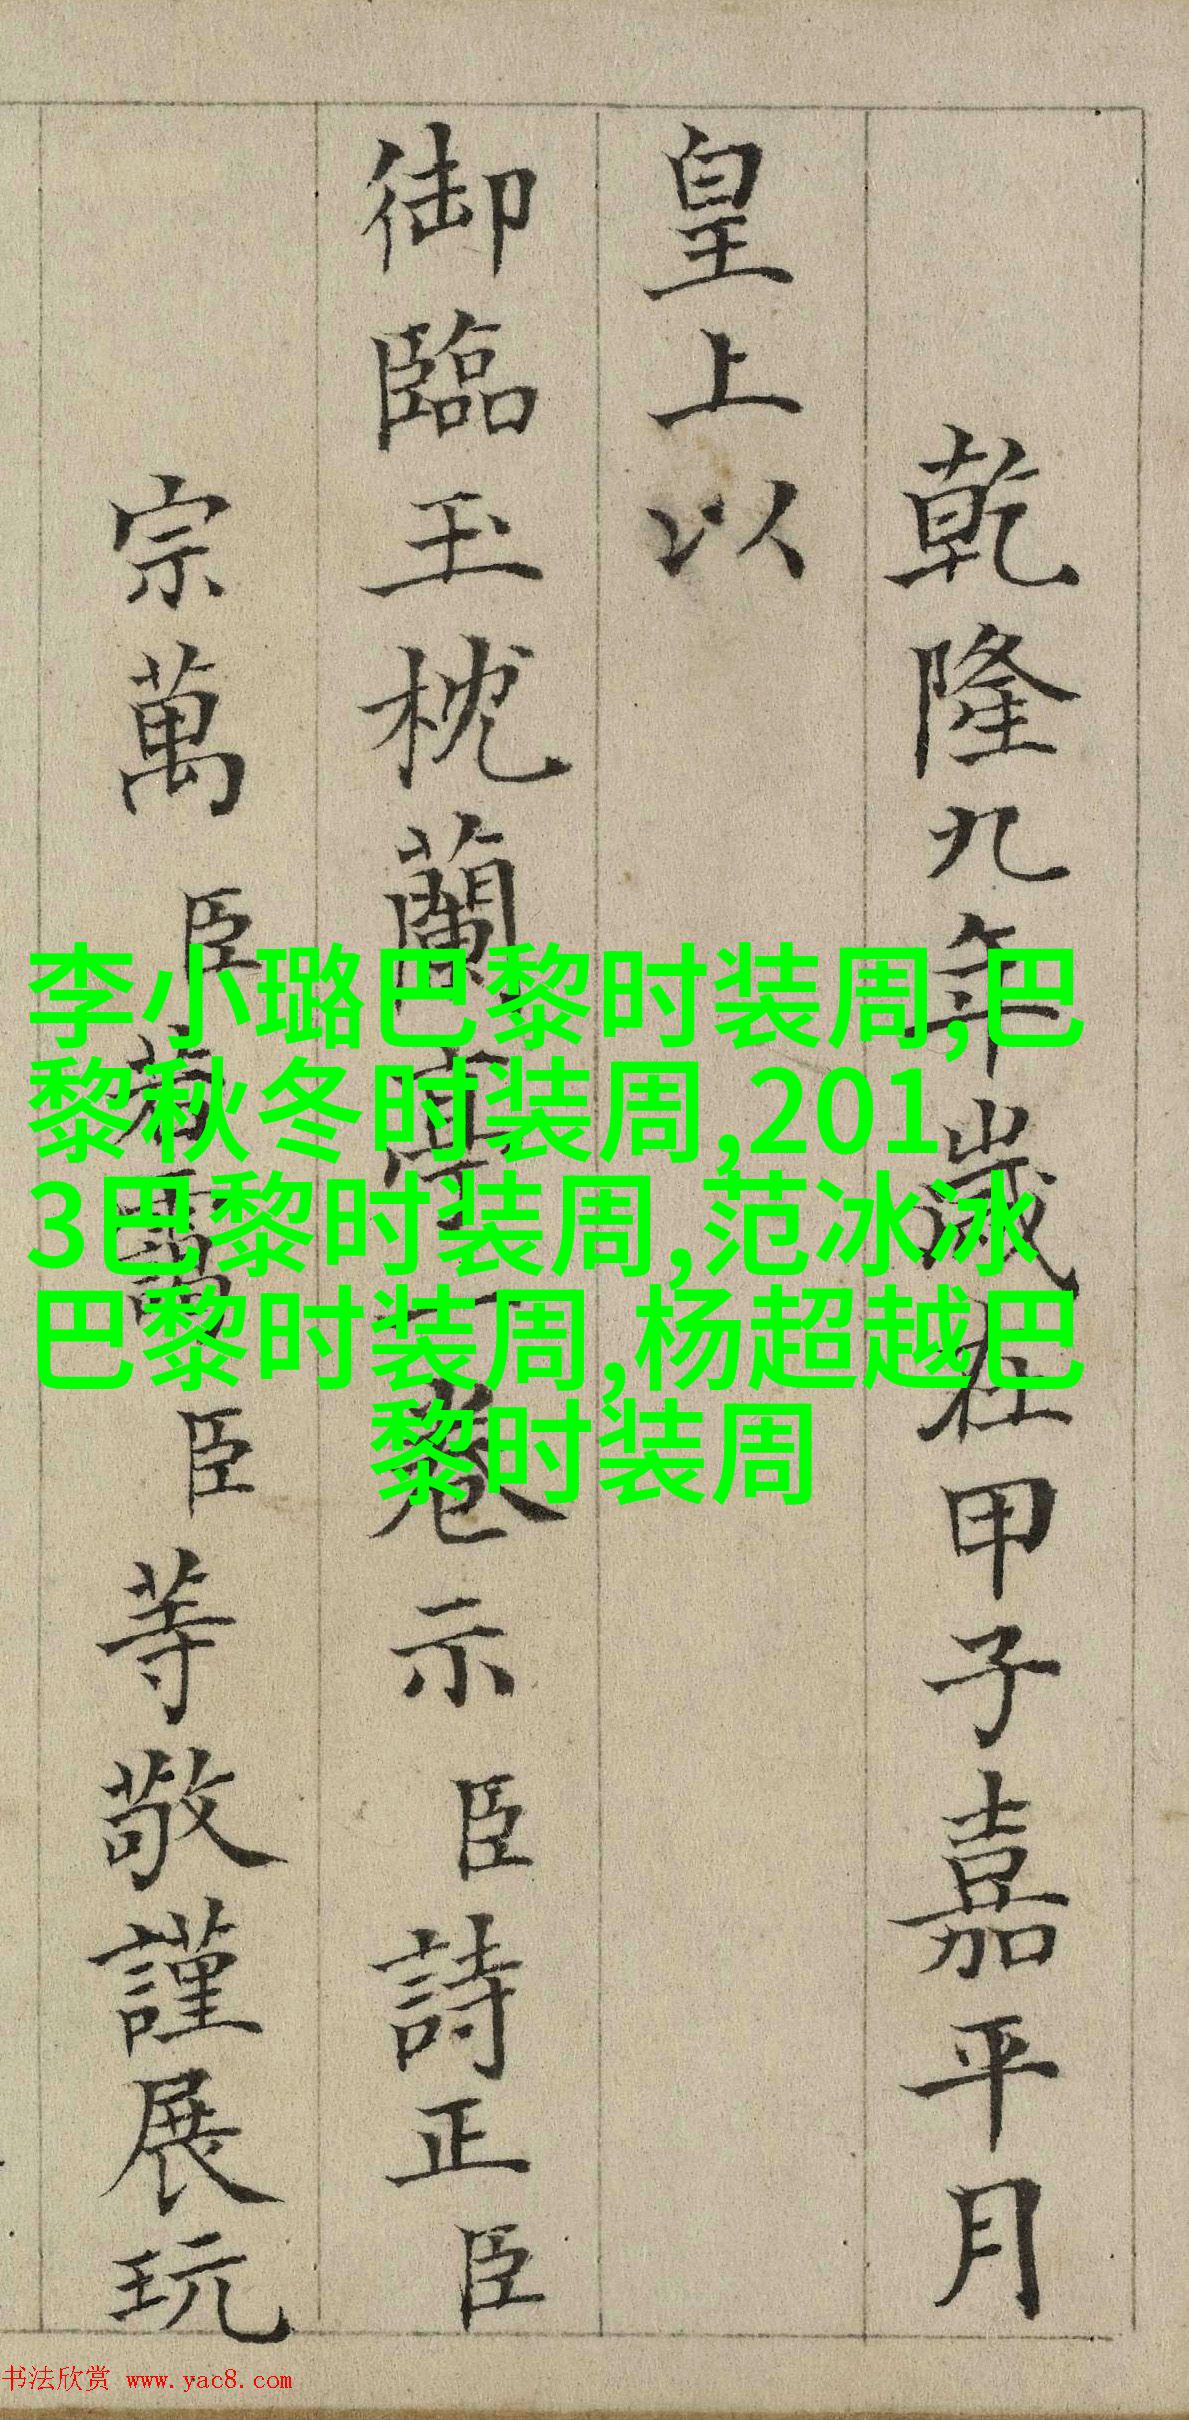 乾隆九年歲在甲子嘉平月
皇上以
御臨玉枕蘭亭一卷示臣詩正臣
宗萬臣若靄臣等敬謹展玩
李小璐巴黎时装周,巴
黎秋冬时装周,201
3巴黎时装周,范冰冰
巴黎时装周,杨超越巴
黎时装周
书法欣赏 www.yac8.com